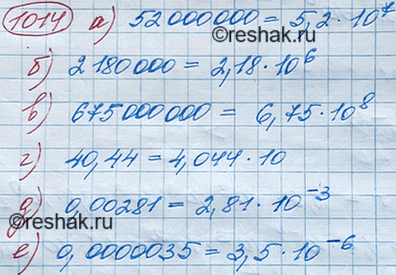 1014 а) 52 000 000 = 5,2 · 10⁷
©reshak.ru
б) 2 180 000 = 2,18 · 10⁶
в) 675 000 000 = 6,75 · 10⁸
г) 40,44 = 4,044 · 10
д) 0,00281 = 2,81 · 10⁻³
@reshak.ru
е) 0,0000035 = 3,5 · 10⁻⁶